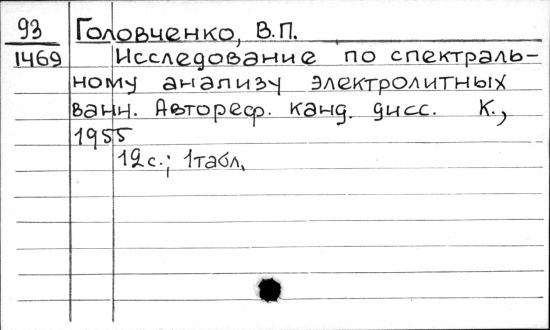 93 Головченко, В.П.
1469 Исследование по спектраль-
ному анализу электролитных
ванн. Автореф. канд. дисс. К.,
1955
12с.; 1табл.